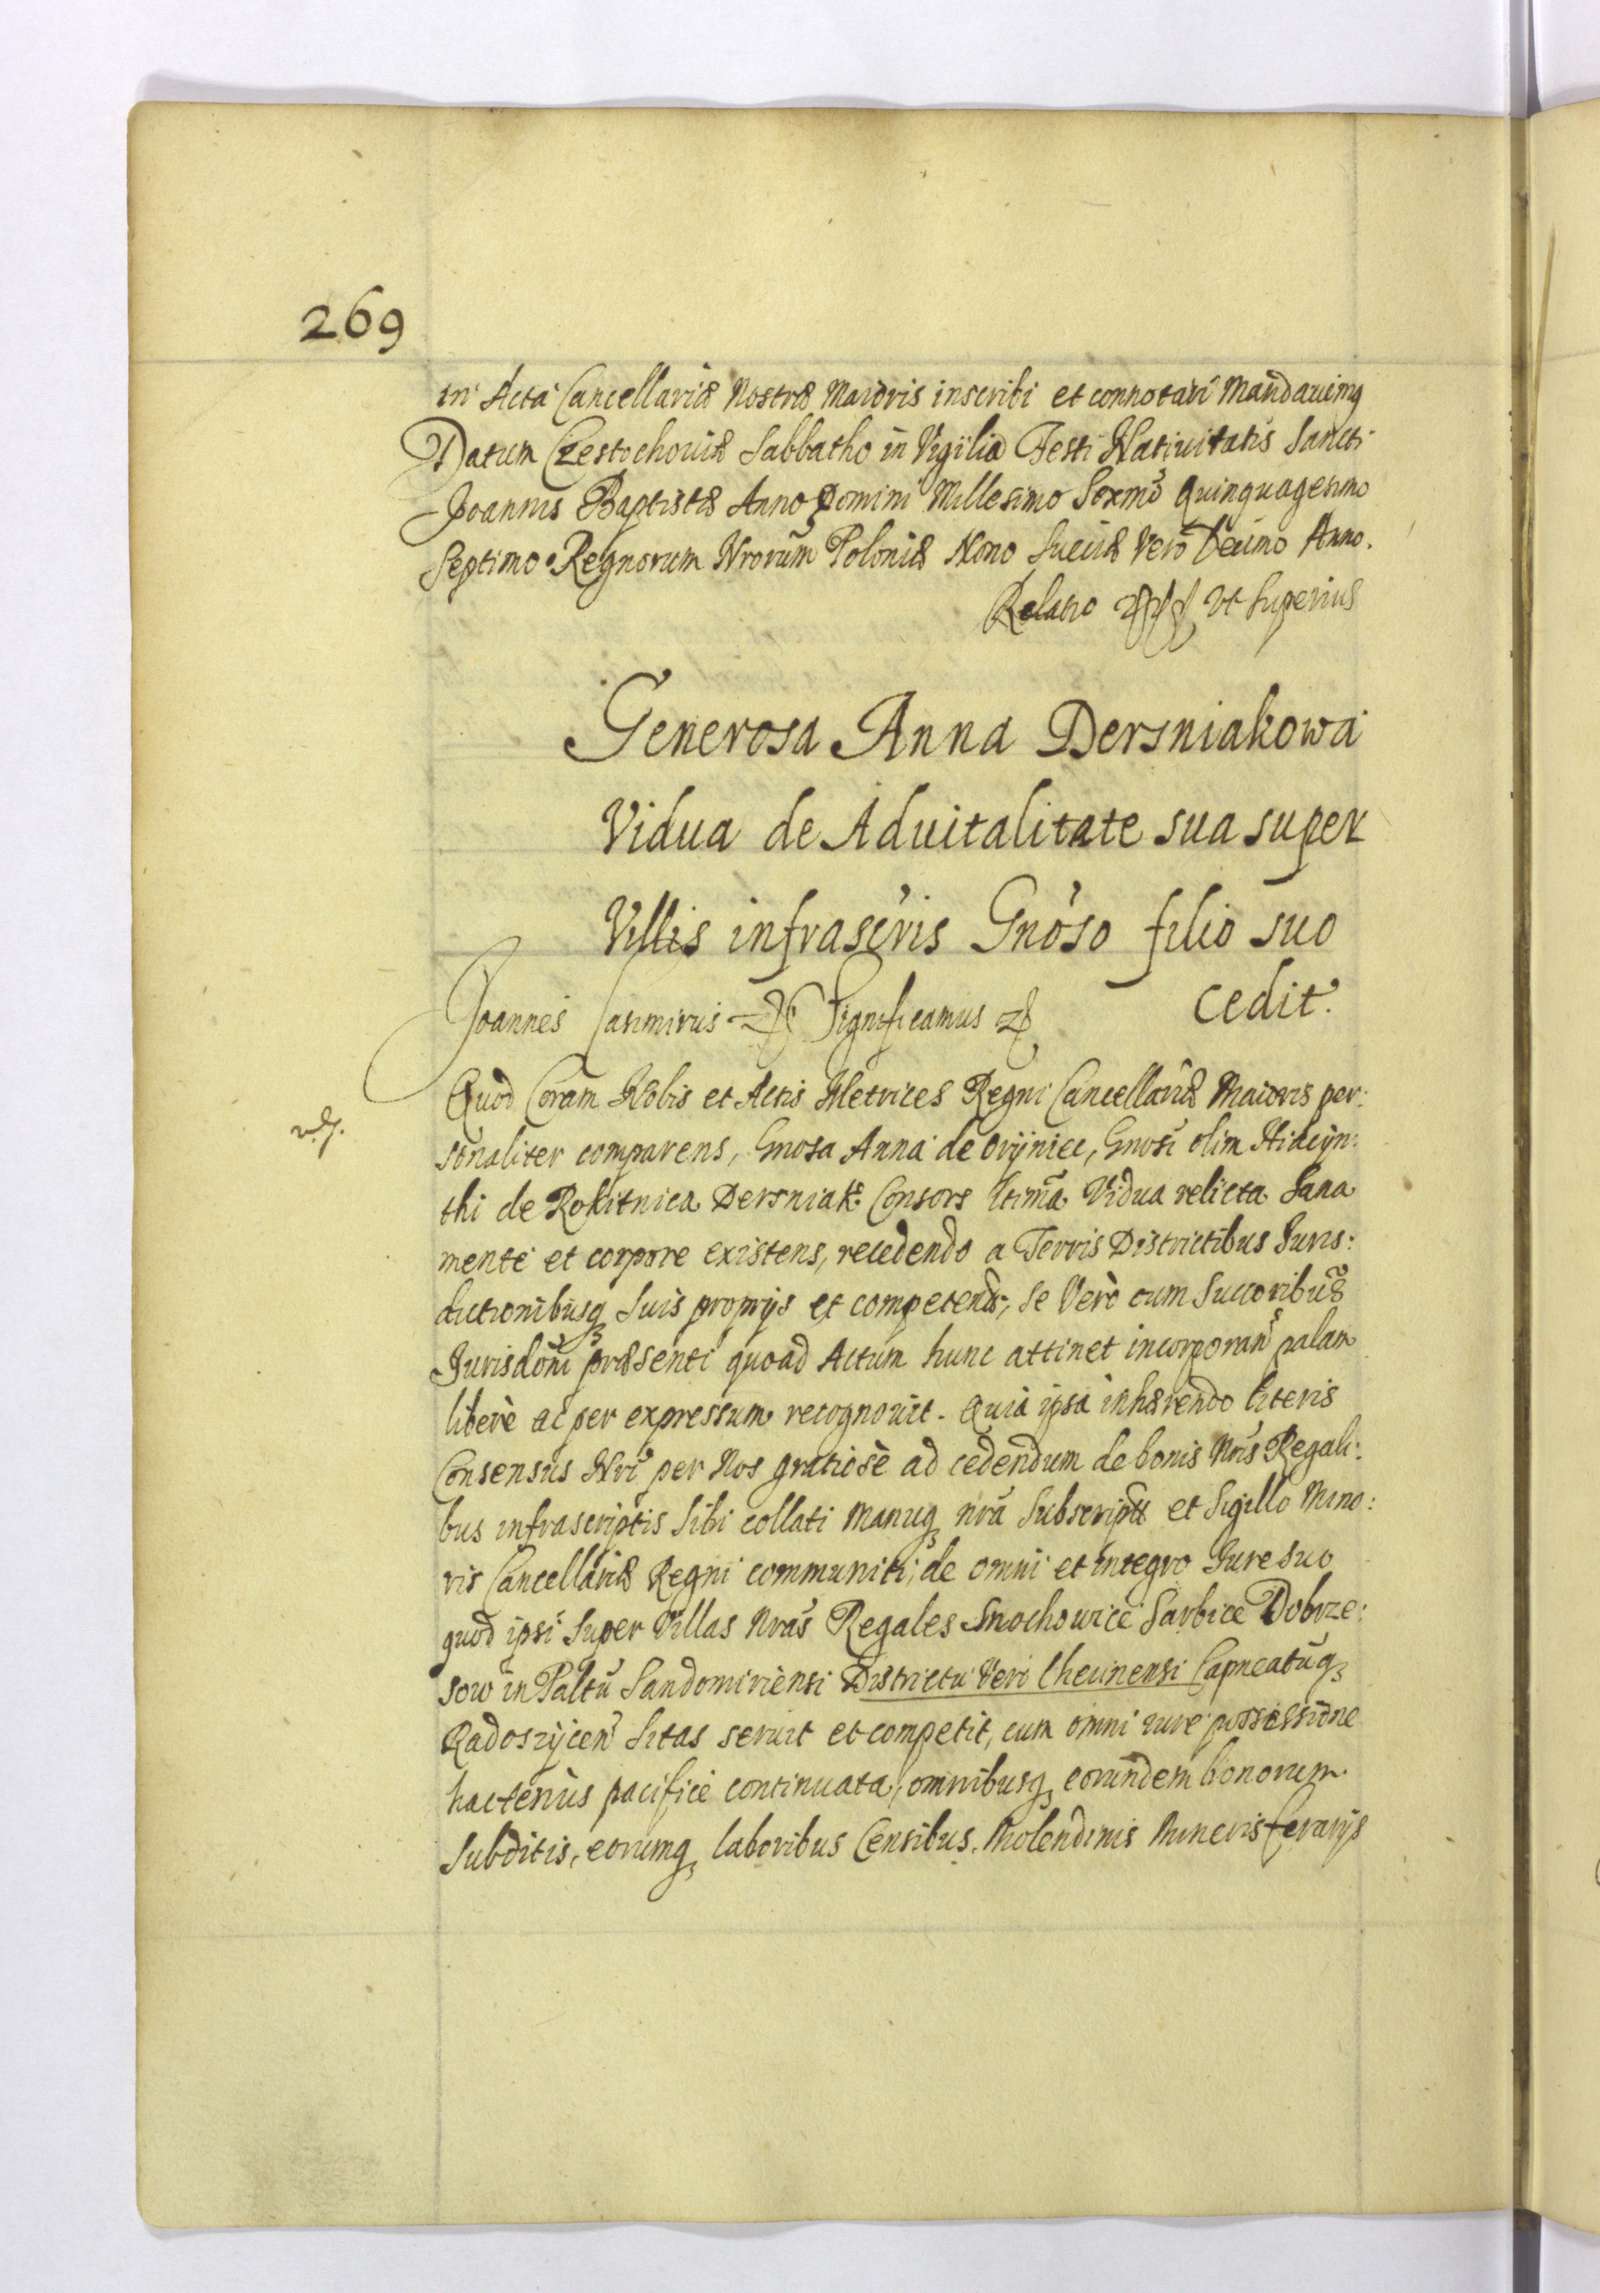 269
in Acta Cancellariæ Nostræ Maioris inscribi et connotari Mandauimq
Datum Czestochouiæ Sabbatho in Vigilia Festi Natiuitatis Sancti
Joannis Baptistæ Anno Domini Millesimo Sexm̃o Quinquagesimo
Septimo Regnorum Nrorum Poloniæ Nono Sueciæ Vero Decimo Anno.
Relatio Vt Superius
Generosa Anna Dersniakowa
Vidua de Aduitalitate sua super
Villis infrascris Gnoso filio suo
cedit.
Joannes Casimirus Significamus
Quod Coram Nobis et Actis Metrices Regni Cancellariæ Maioris per:
sonaliter comparens, Gnosa Anna de Oryniec, Gnosi olim Hiacyn:
thi de Rokitnica Dersniak Consors ltima Vidua relicta Sana
mente et corpore existens, recedendo a Terris Districtibus Juris:
dictionibusq suis proprijs et competen; se Verò cum Succoribus
Jurisdoni præsenti quoad Actum hunc attinet incorporan palam
liberè ac per expressum recognouit. Quia ipsa inhærendo literis
Consensus Nri per Nos gratiosè ad cedendum de bonis Nris Regali:
bus infrascriptis Sibi collati Manuq nra Subscripti et Sigillo Mino:
ris Cancellariæ Regni communiti; de omni et integro Jure suo
quod ipsi Super Villas Nras Regales Snochowice Sarbice Dobrze:
sow in Paltu Sandomiriensi Districtu Vero Checinensi Capneatuq
Radoszycen Sitas seruit et competit, cum omni iure possessione
hactenus pacifice continuata, omnibusq eorundem bonorum
Subditis, eorumq laboribus Censibus. Molendinis Mineris ferarijs